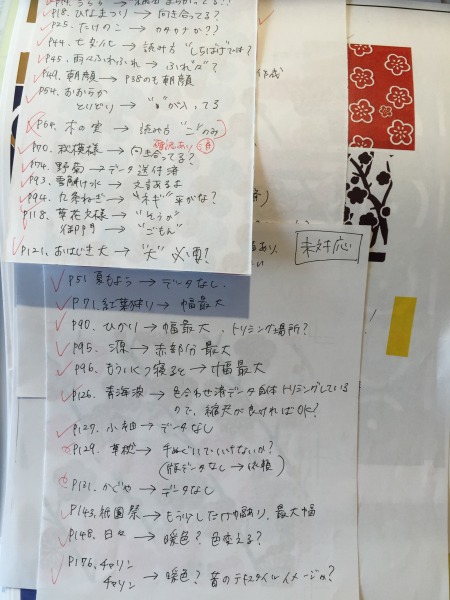 P18. ひなまつり → 向き合ってる?
P25. たけのこ → カタカナか??
P44. 七変化 → 読み方 "しちばけ"では?
P45. 雨々ふれふれ → ふれ"々"?
P49. 朝顔 → P38のも朝顔
P54. おおらか
とりどり → "、"が入ってる
P64. 木の実 → 読み方 "このみ"
P70. 秋模様 → 向き合ってる?
確認あり 済
P74. 野菊 → データ送付済
P93. 雪解け水 → 文字あるよ
P94. 九条ねぎ → "ネギ" 平がな?
P118. 草花文様 → "そうか"
御門 → "ごもん"
P121. おはじき大 → "大" 必要?
作成
未対応
P51 夏もよう → データなし.
P71. 紅葉狩り → 幅最大
P90. ひかり → 幅最大、トリミング場所?
P95. 源 → 赤部分最大
P96. もういくつ寝ると → 幅最大
P126. 青海波 → 色合わせ済データ自体トリミングしている
ので、縮尺が良ければOK?
P127. 小紬 → データなし
P129. 草燃 → 手ぬぐいでいけないか?
(版データなし → 依頼)
P131. かぐや → データなし
P143. 祇園祭 → もう少しだけ幅あり、最大幅
P148. 日々 → 暖色? 色変える?
P176. チャリン
チャリン → 暖色? 昔のテキスタイルイメージか?